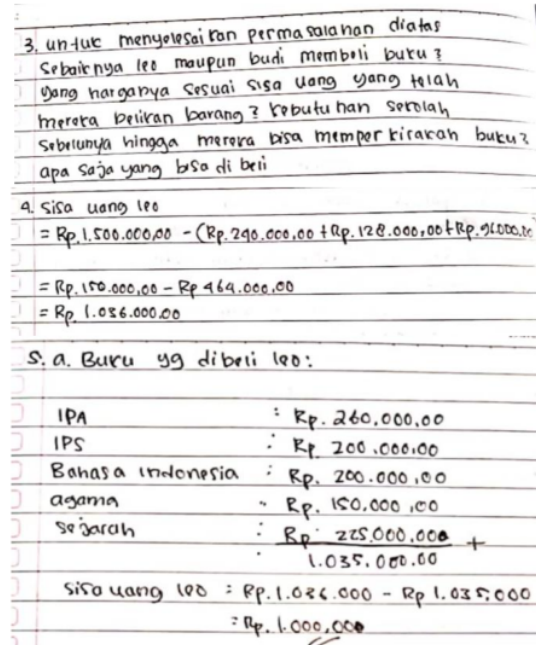 3. untuk menyelesaikan permasalahan diatas
Sebaiknya leo maupun budi membeli buku2
yang harganya sesuai sisa uang yang telah
mereka belikan barang2 kebutuhan sekolah
sebelunya hingga mereka bisa memperkirakan buku2
apa saja yang bisa di beli
4. Sisa uang leo
= Rp. 1.500.000,00 - (Rp. 240.000,00 + Rp. 128.000,00 + Rp. 96.000,00
= Rp. 150.000,00 - Rp 464.000,00
= Rp. 1.036.000.00
5. a. Buku yg dibeli leo:
IPA : Rp. 260.000,00
IPS : Rp. 200.000,00
Bahasa indonesia : Rp. 200.000,00
agama : Rp. 150.000,00
sejarah : Rp. 225.000,000 +
: 1.035.000.00
sisa uang leo = Rp. 1.036.000 - Rp 1.035.000
= Rp. 1.000,000